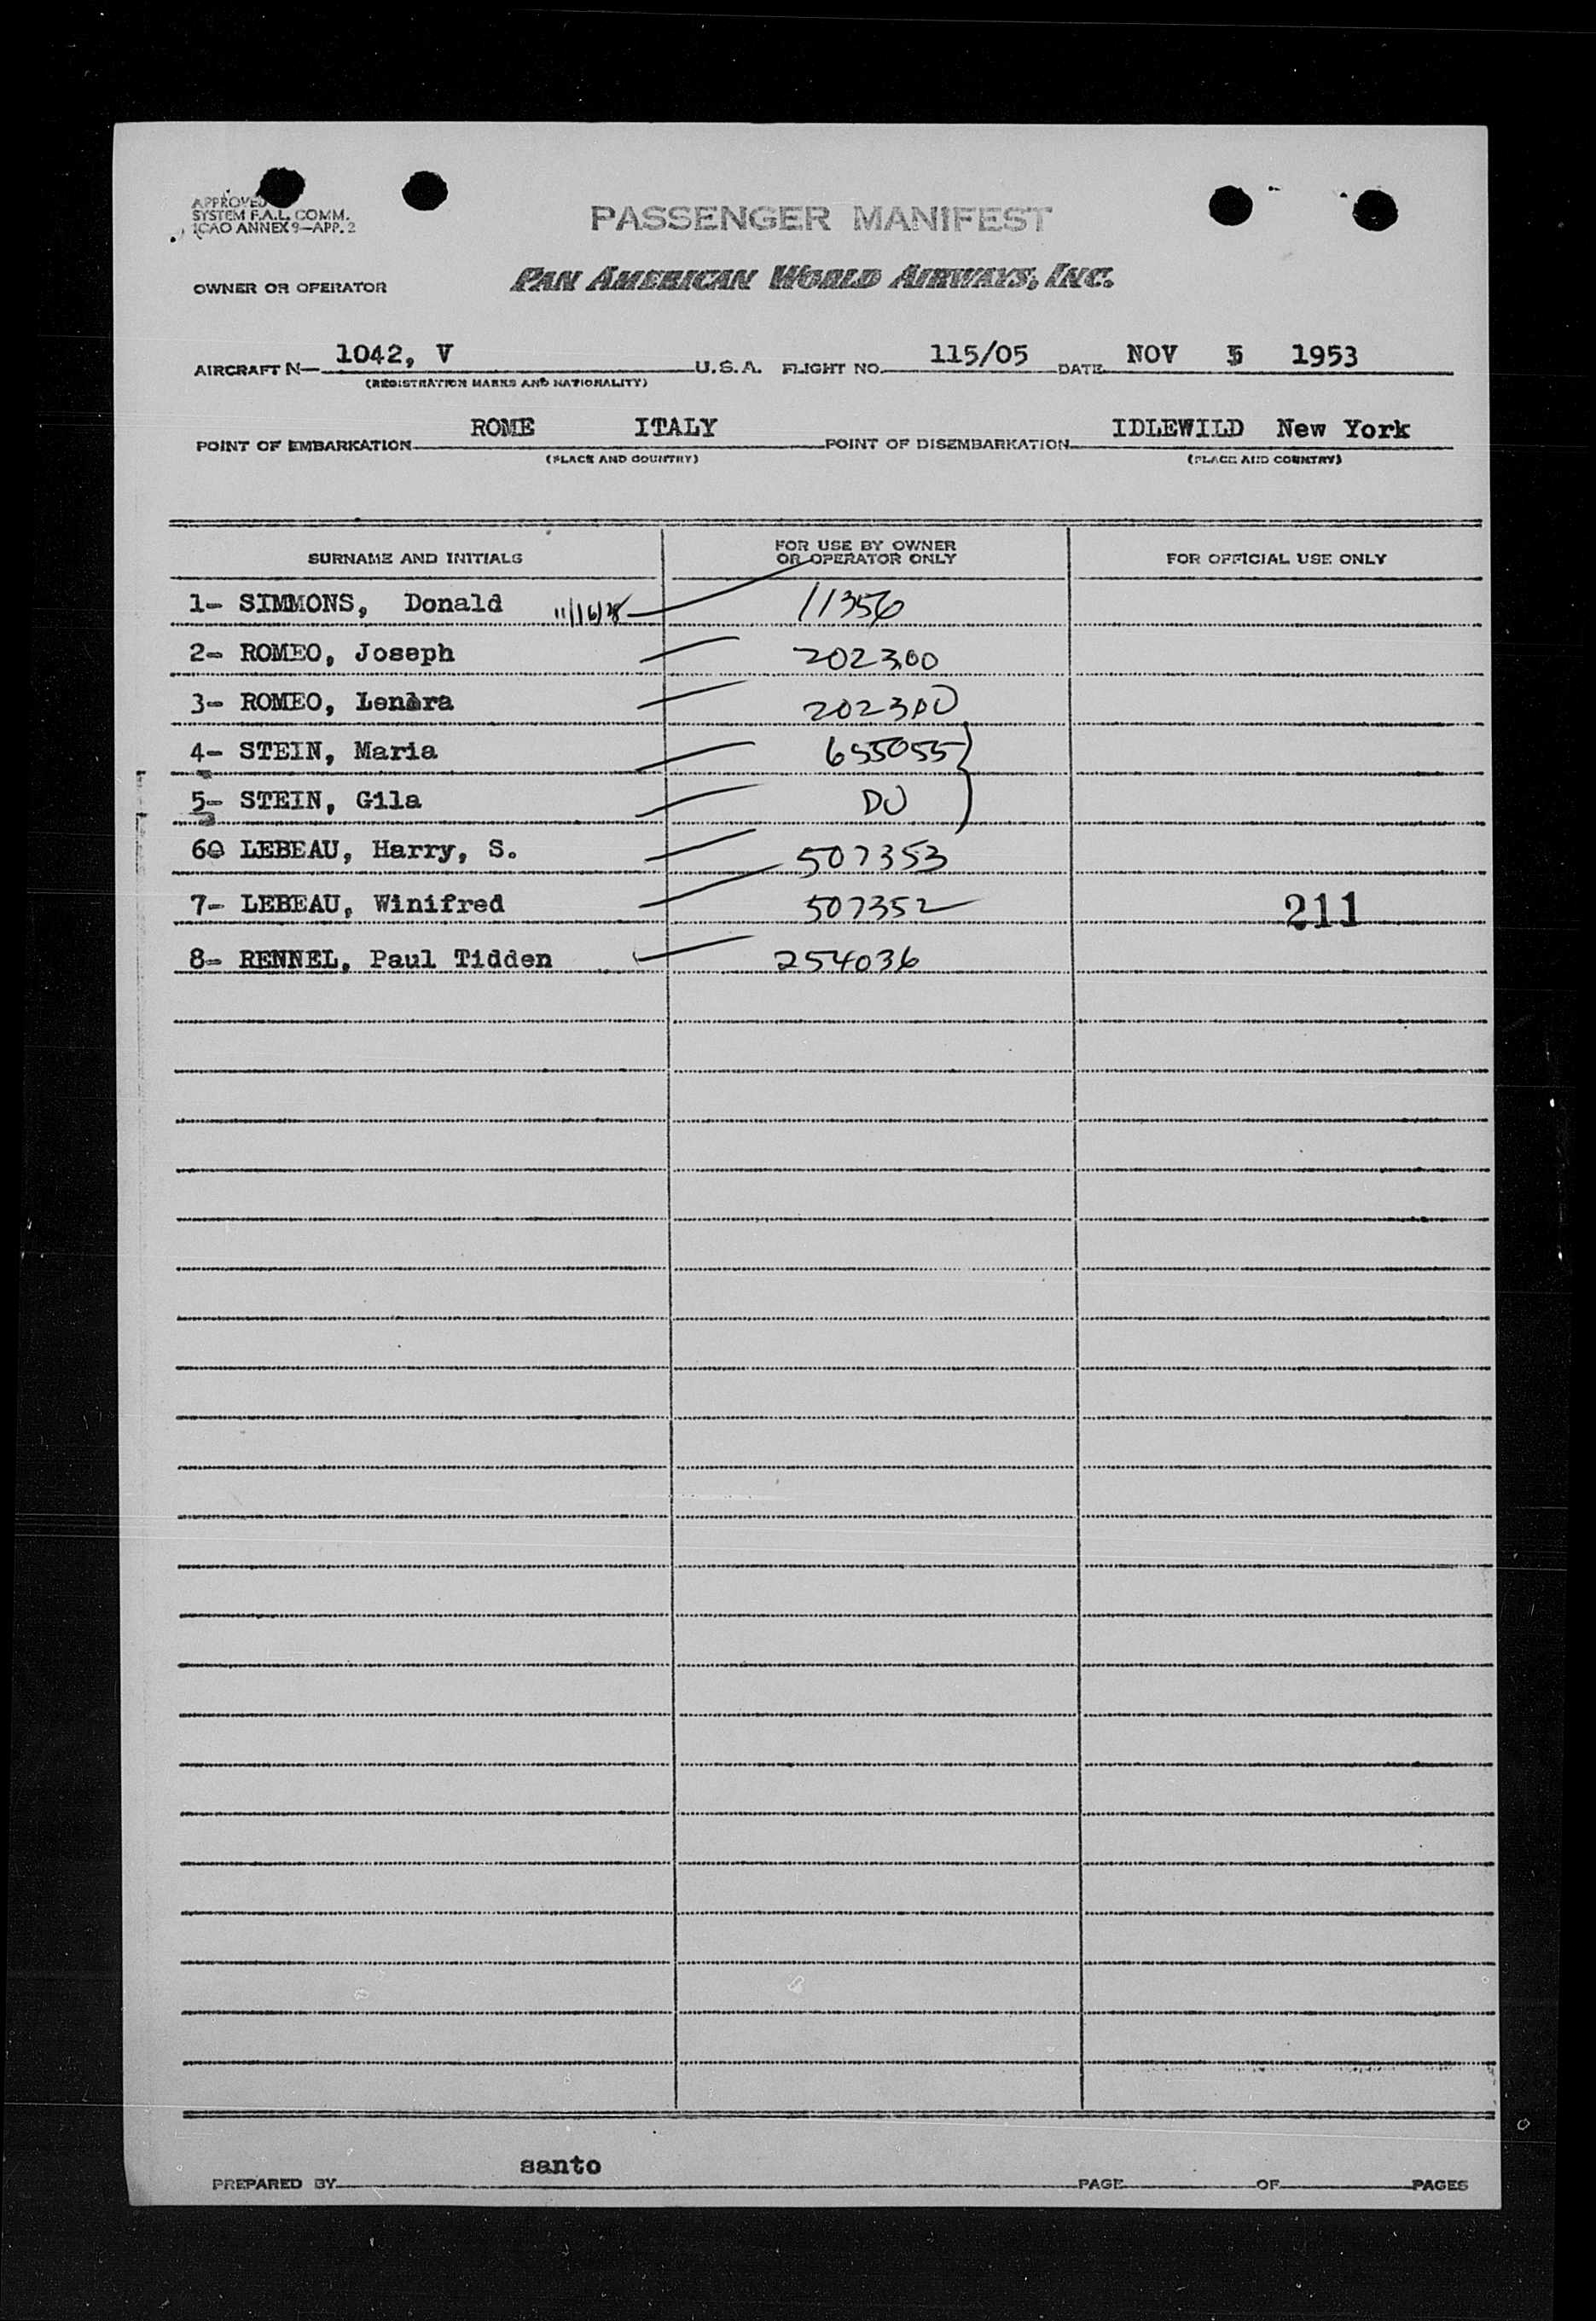 APPROVED
SYSTEM F.A.L. COMM.
ICAO ANNEX 9—APP. 2
PASSENGER MANIFEST
OWNER OR OPERATOR PAN AMERICAN WORLD AIRWAYS, INC.
AIRCRAFT N— 1042, V U.S.A. FLIGHT NO. 115/05 DATE NOV 5 1953
(REGISTRATION MARKS AND NATIONALITY)
POINT OF EMBARKATION ROME ITALY POINT OF DISEMBARKATION IDLEWILD New York
(PLACE AND COUNTRY) (PLACE AND COUNTRY)
SURNAME AND INITIALS FOR USE BY OWNER OR OPERATOR ONLY FOR OFFICIAL USE ONLY
1- SIMMONS, Donald 11356
2- ROMEO, Joseph 202300
3- ROMEO, 202300
4- STEIN, Maria 655055
5- STEIN, Gila DO
6 LEBEAU, Harry, S. 507353
7- LEBEAU, Winifred 507352 211
8- RENNEL, Paul Tidden 254036
PREPARED BY santo PAGE OF PAGES